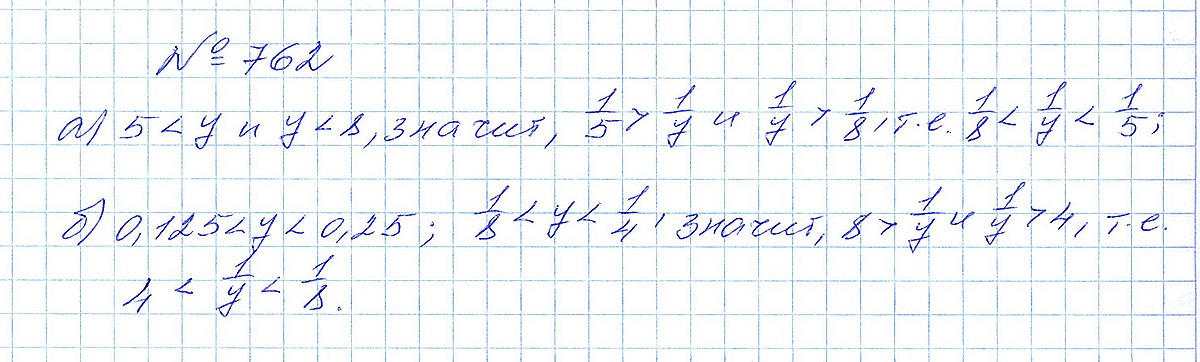 № 762
а) 5 < y и y < 8, значит, 1/5 > 1/y и 1/y > 1/8, т.е. 1/8 < 1/y < 1/5;
б) 0,125 < y < 0,25; 1/8 < y < 1/4, значит, 8 > 1/y и 1/y > 4, т.е.
4 < 1/y < 1/8.